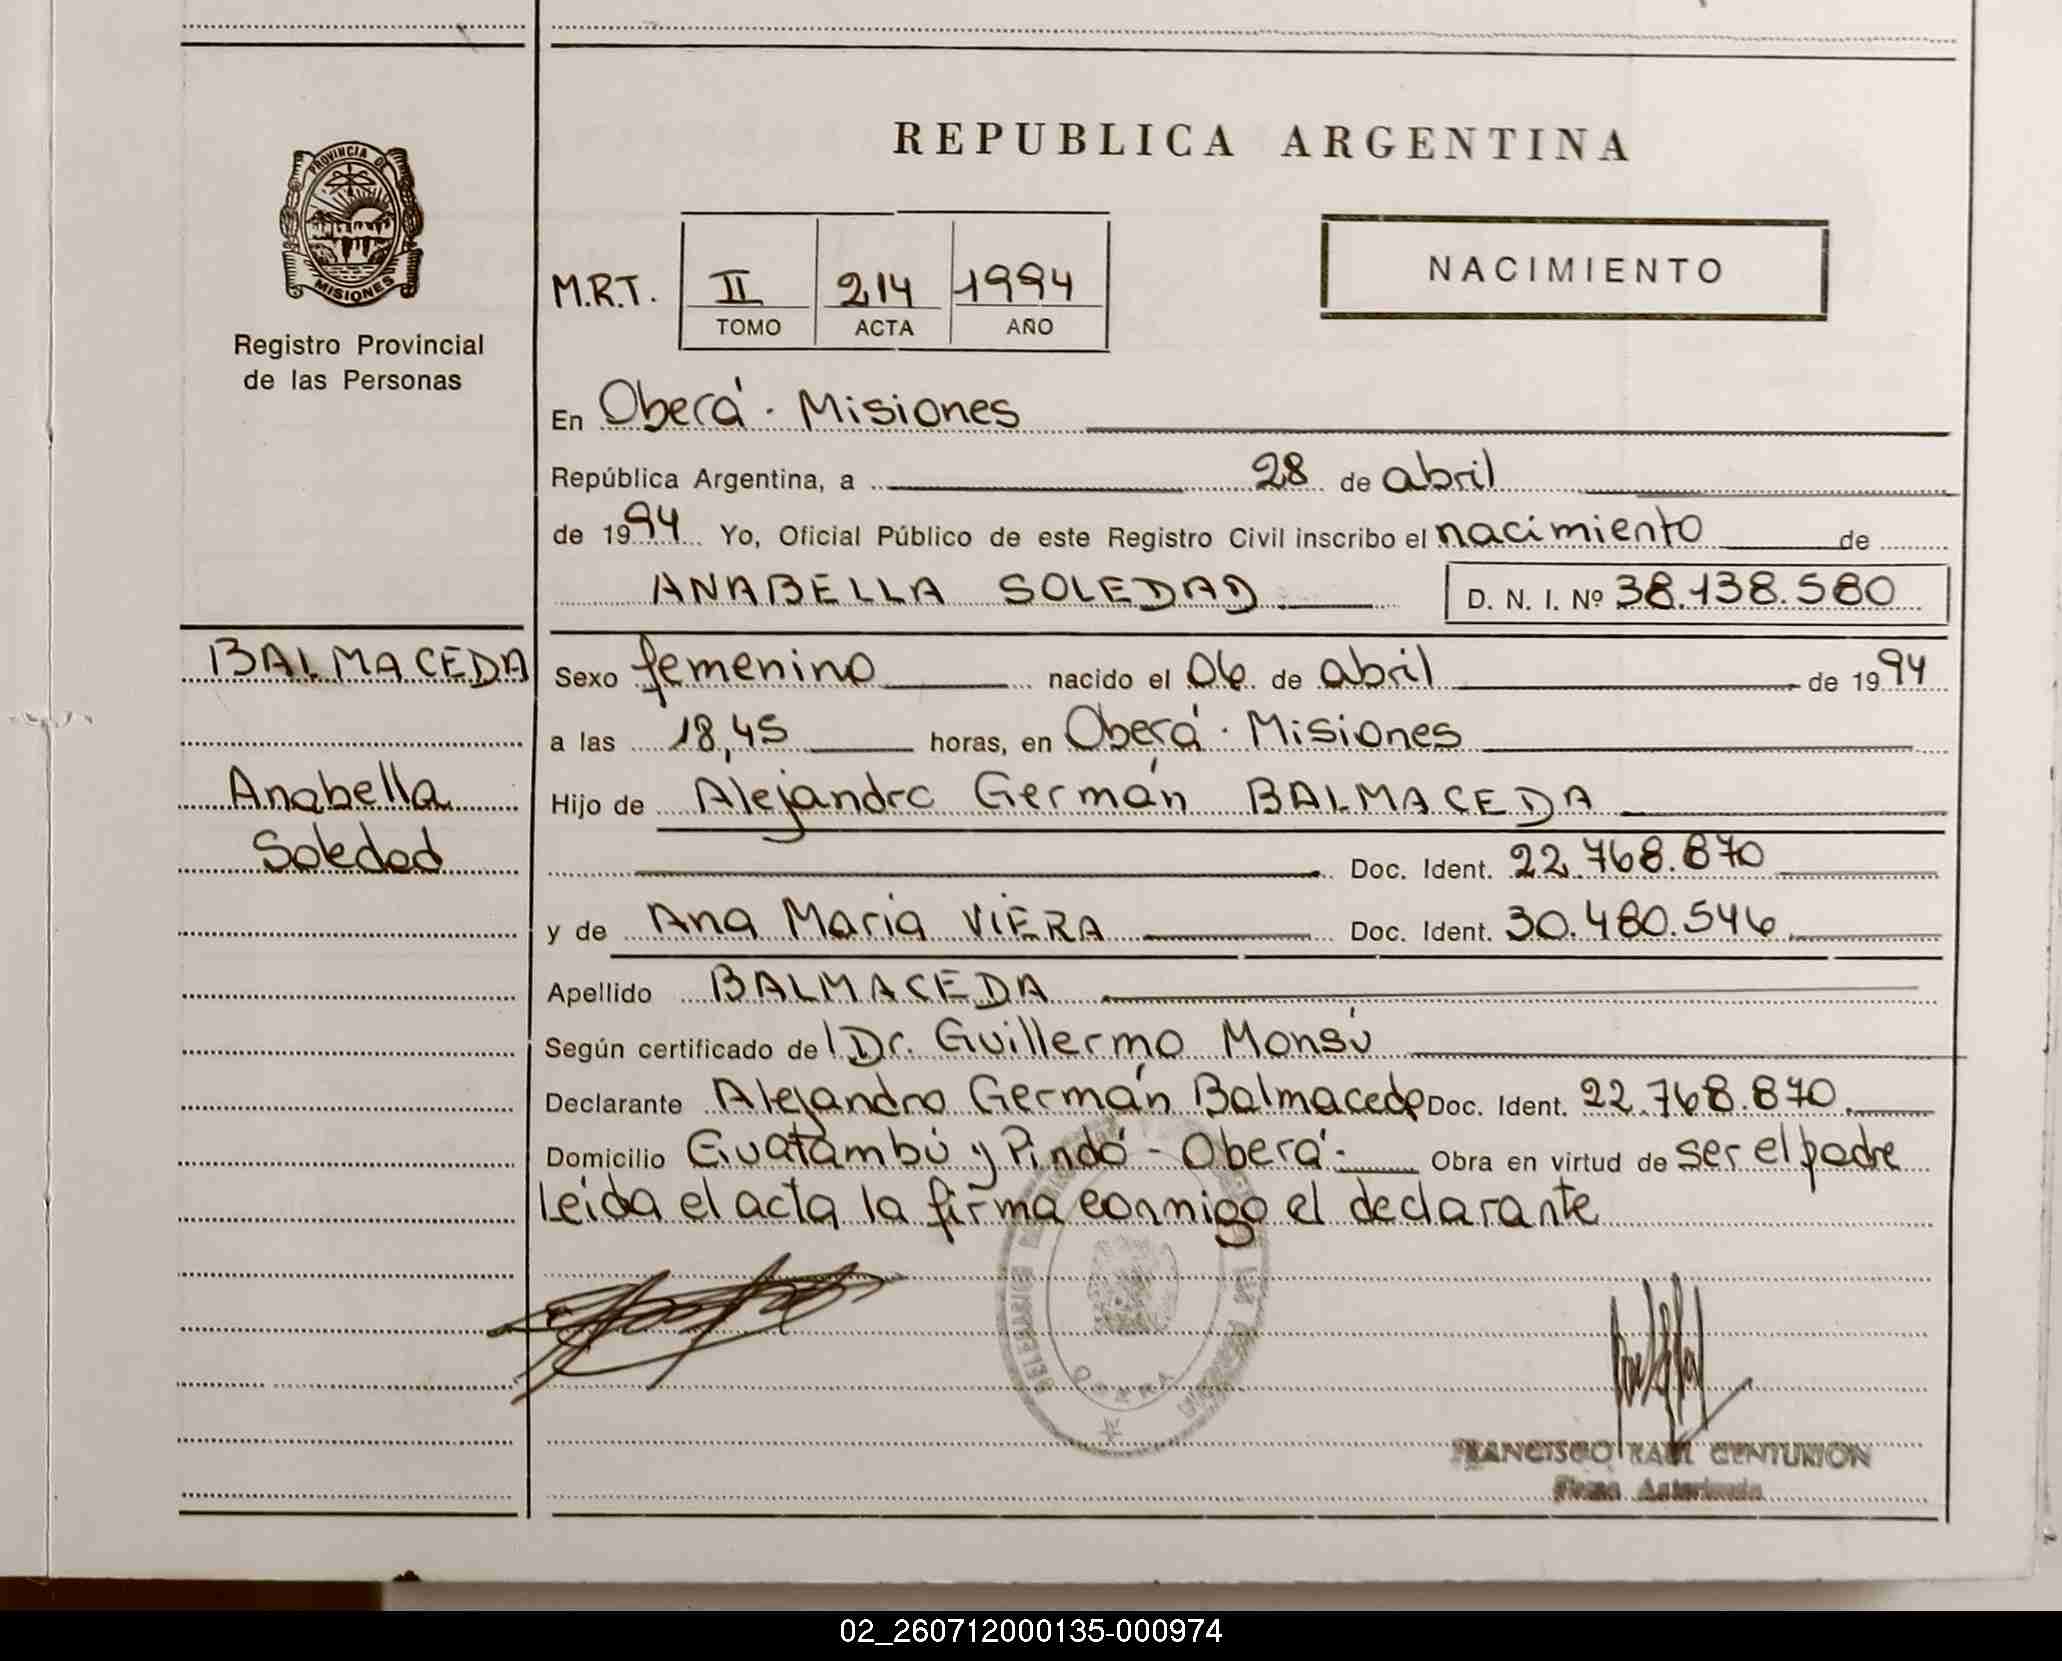 REPUBLICA ARGENTINA
PROVINCIA DE
MISIONES
Registro Provincial
de las Personas
NACIMIENTO
M.R.T. II 214 1994
TOMO ACTA AÑO
En Oberá - Misiones
República Argentina, a 28 de abril
de 1994 Yo, Oficial Público de este Registro Civil inscribo el nacimiento de
ANABELLA SOLEDAD D. N. I. Nº 38.138.580
BALMACEDA
Anabella
Soledad
Sexo femenino nacido el 06 de abril de 1994
a las 18,45 horas, en Oberá - Misiones
Hijo de Alejandro Germán BALMACEDA
Doc. Ident. 22.768.870
y de Ana Maria VIERA Doc. Ident. 30.480.546
Apellido BALMACEDA
Según certificado de Dr. Guillermo Monsú
Declarante Alejandro Germán Balmaceda Doc. Ident. 22.768.870
Domicilio Guatambú y Pindó - Oberá - Obra en virtud de ser el padre
Leida el acta la firma conmigo el declarante
OBERA
FRANCISCO RAUL CENTURION
Firma Autorizada
02_260712000135-000974